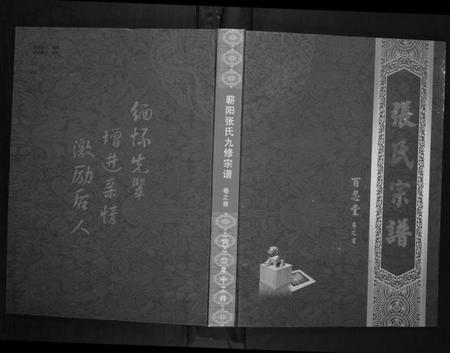 張氏宗譜
百忍堂 卷之首
蕲阳张氏九修宗谱 卷之首
缅怀先辈
增进亲情
激励后人